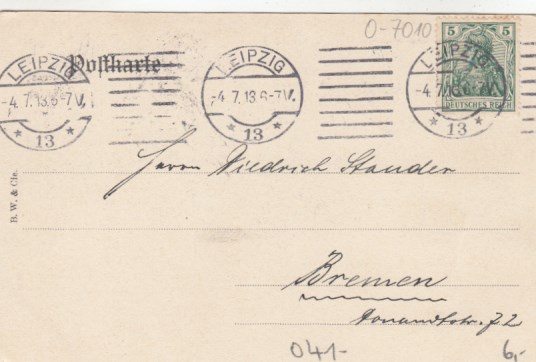 O-7010
5 5
DEUTSCHES REICH
Postkarte
LEIPZIG
-4.7.13.6-7V.
* 13 *
LEIPZIG
-4.7.13.6-7V.
* 13 *
LEIPZIG
-4.7.13.6-7V.
* 13 *
B. W. & Cie.
Herrn Diedrich Stander
Bremen
72
041-
6,-